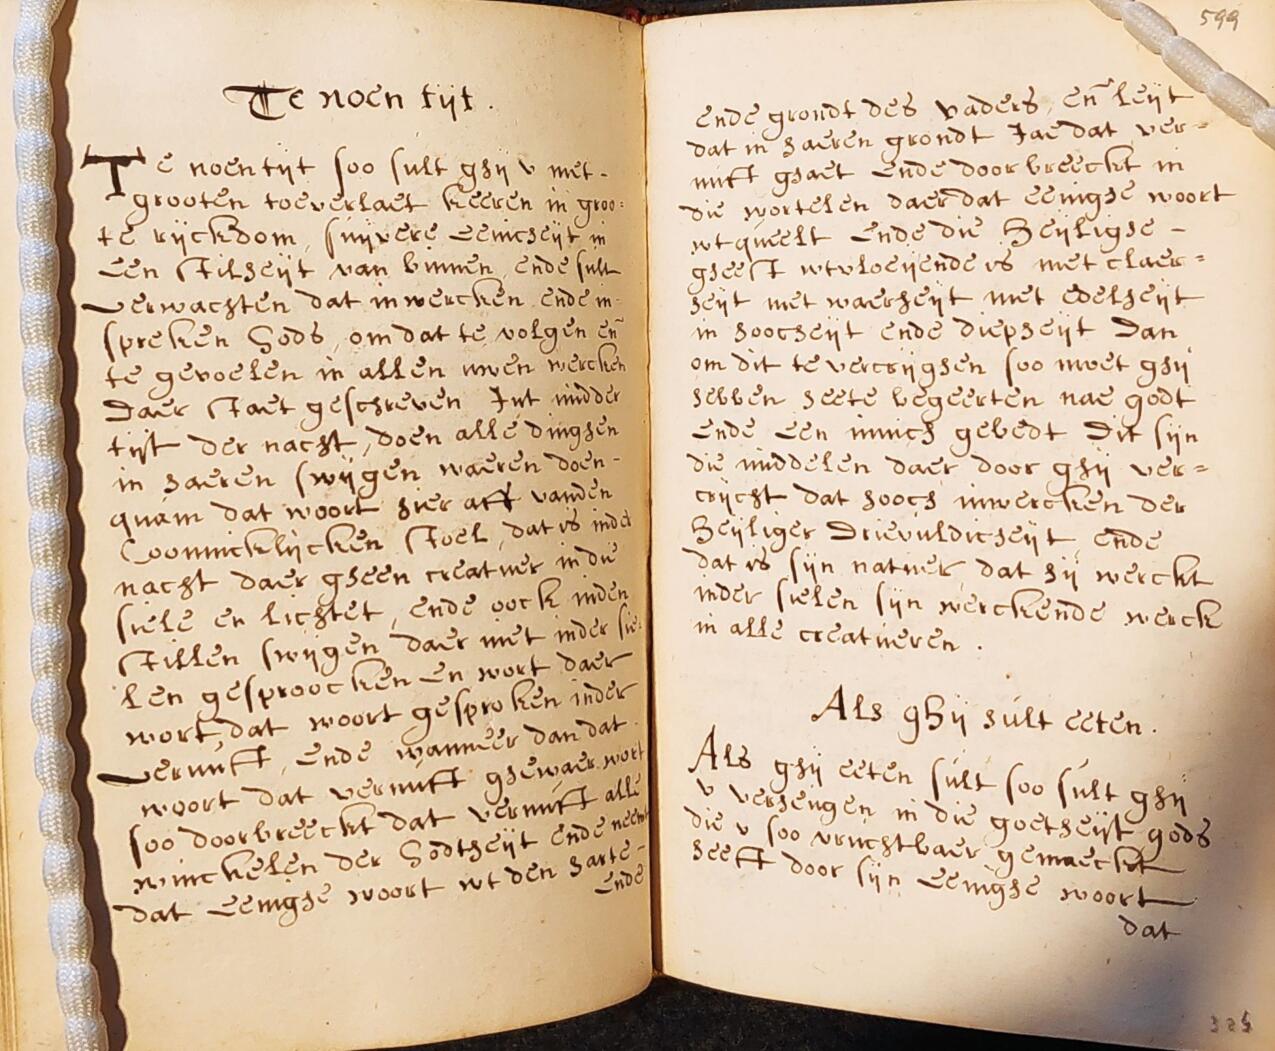 Te noen tijt.
Te noen tijt soo sult ghij v met-
grooten toeverlaet keeren in groo=
te rijckdom, suijvere eenicheijt in
een stilheijt van binnen, ende sult
verwachten dat inwercken ende in-
spreken Gods, om dat te volgen en̄
te gevoelen in allen uwen wercken
Daer staet geschreven Int midder
tijt der nacht, doen alle dinghen
in haeren swijgen waeren doen-
quam dat woort hier aff vanden
Coonincklijcken stoel, dat is inder
nacht daer gheen creatuer in die
siele en lichtet, ende oock inden
stillen swijgen daer niet inder sie-
len gesproocken en wort daer
wort, dat woort gesproken inder
vernuft, ende wanneer dan dat
woort dat vernuft ghewaer wort
soo doorbreeckt dat vernuft alle
winckelen der Godtheijt ende neemt
dat eenighe woort wt den harte-
ende
599
ende grondt des vaders, en̄ leijt
dat in haeren grondt Jae dat ver-
nuft ghaet ende doorbreeckt in
die wortelen daer dat eenighe woort
wtqueelt ende die Heijlighe-
gheest wtvloeijende is met claer=
heijt met waerheijt met edelheijt
in hoocheijt ende diepheijt Dan
om dit te vercrijghen soo moet ghij
hebben heete begeerten nae godt
ende een innich gebedt Dit sijn
die middelen daer door ghij ver=
crijcht dat hooch inwercken der
Heijliger Drievuldicheijt, ende
dat is sijn natuer, dat hij werckt
inder sielen sijn werckende werck
in alle creatueren.
Als ghij sult eeten.
Als ghij eeten sult soo sult ghij
v verheugen in die goetheijt gods
die v soo vruchtbaer gemaeckt
heeft door sijn eenighe woort
dat
325